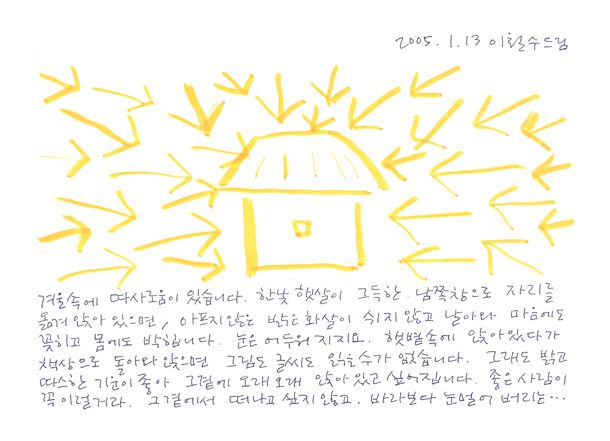 2005. 1. 13 이철수드림
겨울속에 따사로움이 있습니다. 한낮 햇살이 그득한 남쪽창으로 자리를
옮겨 앉아 있으면, 아프지않은 밝은화살이 쉬지않고 날아와 마음에도
꽂히고 몸에도 박힙니다. 눈은 어두워 지지요. 햇볕속에 앉아있다가
책상으로 돌아와 앉으면 그림도 글씨도 읽을수가 없습니다. 그래도 밝고
따스한 기운이 좋아 그곁에 오래오래 앉아 있고 싶어집니다. 좋은사람이
꼭 이럴거라. 그곁에서 떠나고 싶지않고. 바라보다 눈멀어 버리는…